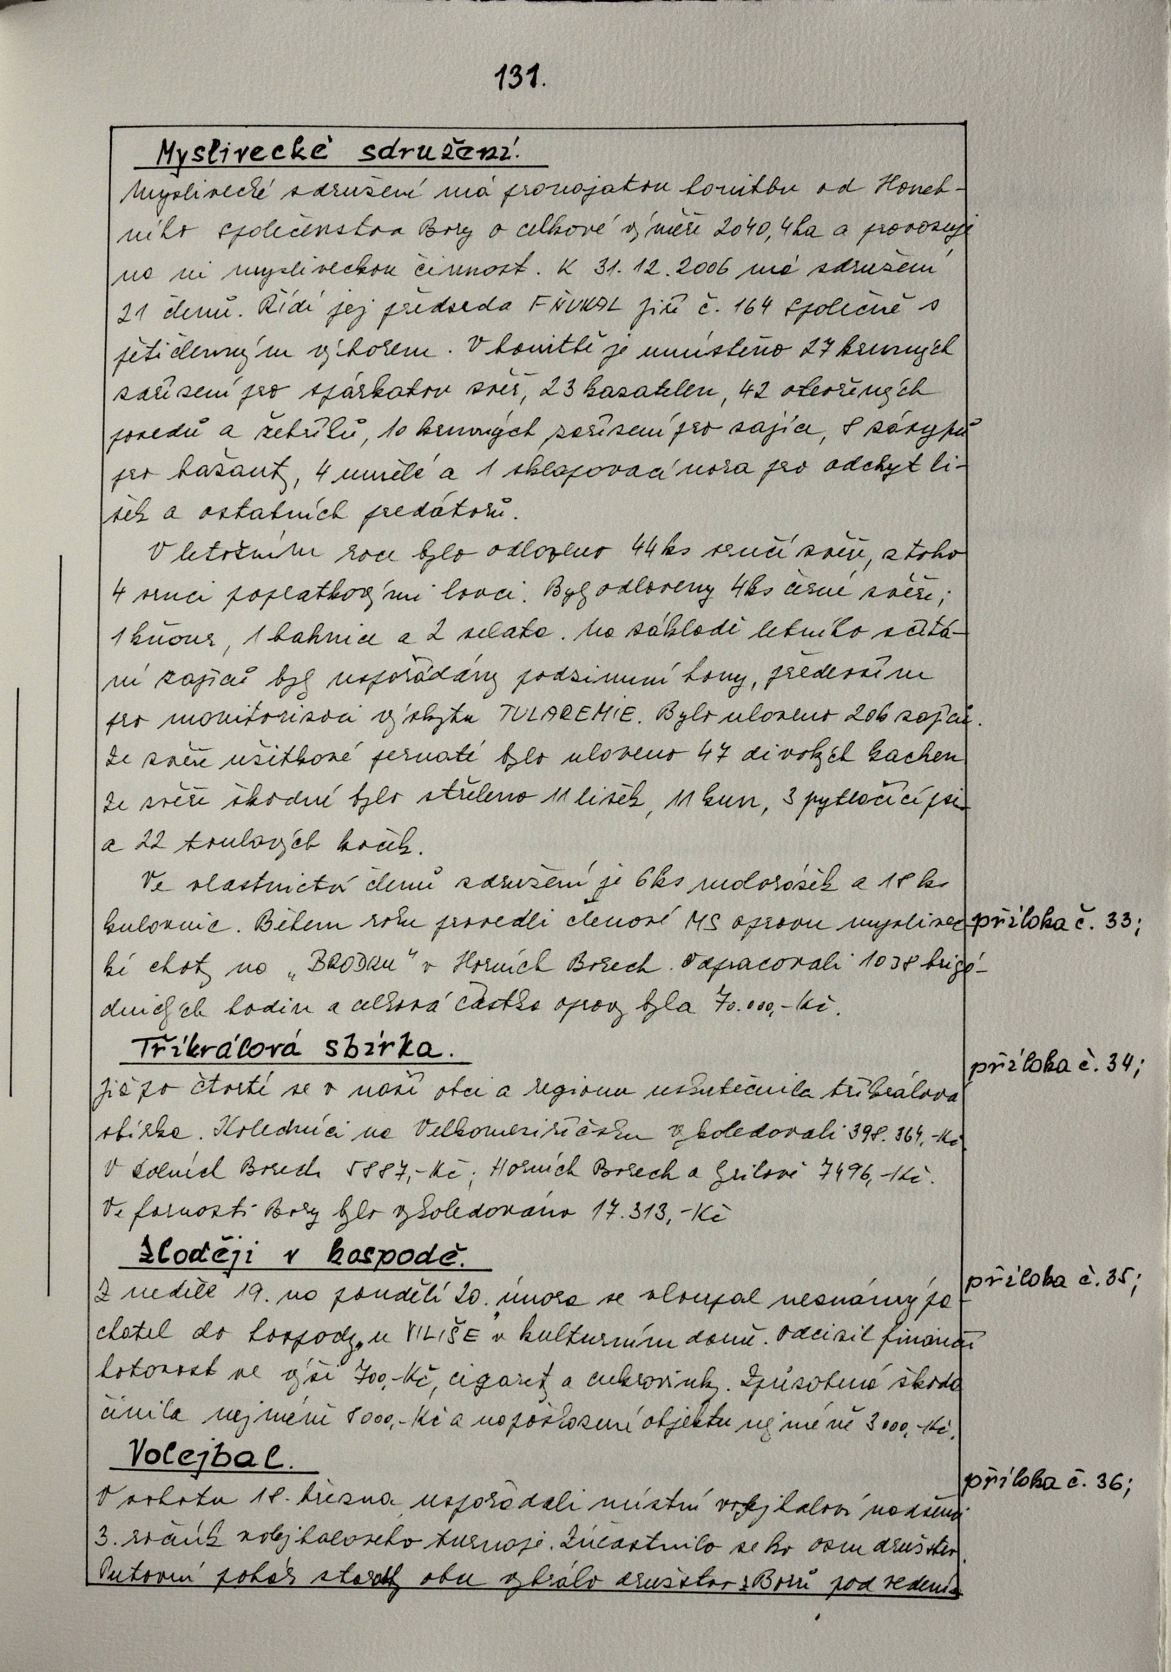 131.
Myslivecké sdružení.
Myslivecké sdružení má pronajatou honitbu od Honeb-
ního společenstva Bory o celkové výměře 2040,4ha a provozuje
na ní mysliveckou činnost. K 31.12.2006 má sdružení
21 členů. Řídí jej předseda FŇUKAL Jiří č. 164 společně s
pětičlenným výborem. V honitbě je umístěno 27 krmných
zařízení pro spárkatou zvěř, 23 kazatelen, 42 otevřených
posedů a žebříků, 10 krmných zařízení pro zajíce, 8 zásypů
pro bažanty, 4 umělé a 1 sklapovací nora pro odchyt li-
šek a ostatních predátorů.
V letošním roce bylo odloveno 44ks srnčí zvěře, z toho
4 srnci poplatkovými lovci. Byly odloveny 4ks černé zvěře;
1 kňour, 1 bahnice a 2 selata. Na základě letního sčítá-
ní zajíců byly uspořádány podzimní hony, především
pro monitorizaci výskytu TULAREMIE. Bylo uloveno 206 zajíců.
Ze zvěře užitkové pernaté bylo uloveno 47 divokých kachen
Ze zvěře škodné bylo střeleno 11 lišek, 11 kun, 3 pytlačící psi
a 22 toulavých koček.
Ve vlastnictví členů sdružení je 6ks and 18 ks
kulovnic. Během roku provedli členové MS opravu myslivec-
ké chaty na „BRODKU" v Horních Borech. Odpracovali 1038 brigá-
dnických hodin a celková částka opravy byla 70.000,-Kč.
příloha č. 33;
Tříkrálová sbírka.
příloha č. 34;
Již po čtvrté se v naší obci a regionu uskutečnila tříkrálová
sbírka. Koledníci na Velkomeziříčsku vykoledovali 398.364,-Kč
V Dolních Borech 5887,-Kč; Horních Borech a Cyrilově 7496,-Kč.
Ve farnosti Bory bylo vykoledováno 17.313,-Kč
Zloději v hospodě.
příloha č.35;
Z neděle 19. na pondělí 20. února se vloupal neznámý pa-
chatel do hospody „u VILIŠE" v kulturním domě. Odcizil finanční
hotovost ve výši 700,-Kč, cigarety a cukrovinky. Způsobená škoda
činila nejméně 8000,-Kč a na poškození objektu nejméně 3000,-Kč.
Volejbal.
příloha č. 36;
V sobotu 18. března uspořádali místní volejbaloví nadšenci
3. ročník volejbalového turnaje. Zúčastnilo se ho osm družstev.
Putovní pohár starosty obce vyhrálo družstvo z Borů pod vedením